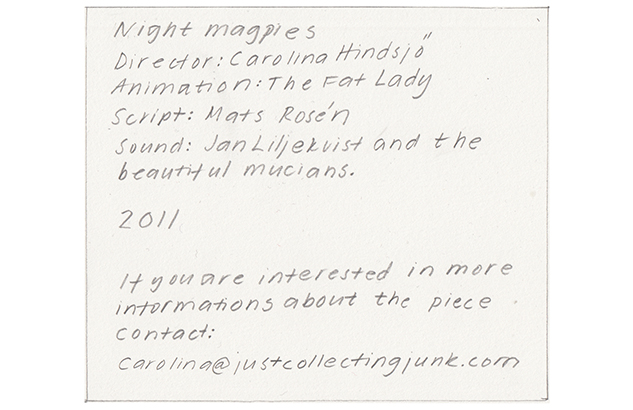 Night magpies
Director: Carolina Hindsjö
Animation: The Fat Lady
Script: Mats Rosén
Sound: Jan Liljekvist and the
beautiful mucians.
2011
If you are interested in more
informations about the piece
contact:
carolina@justcollectingjunk.com